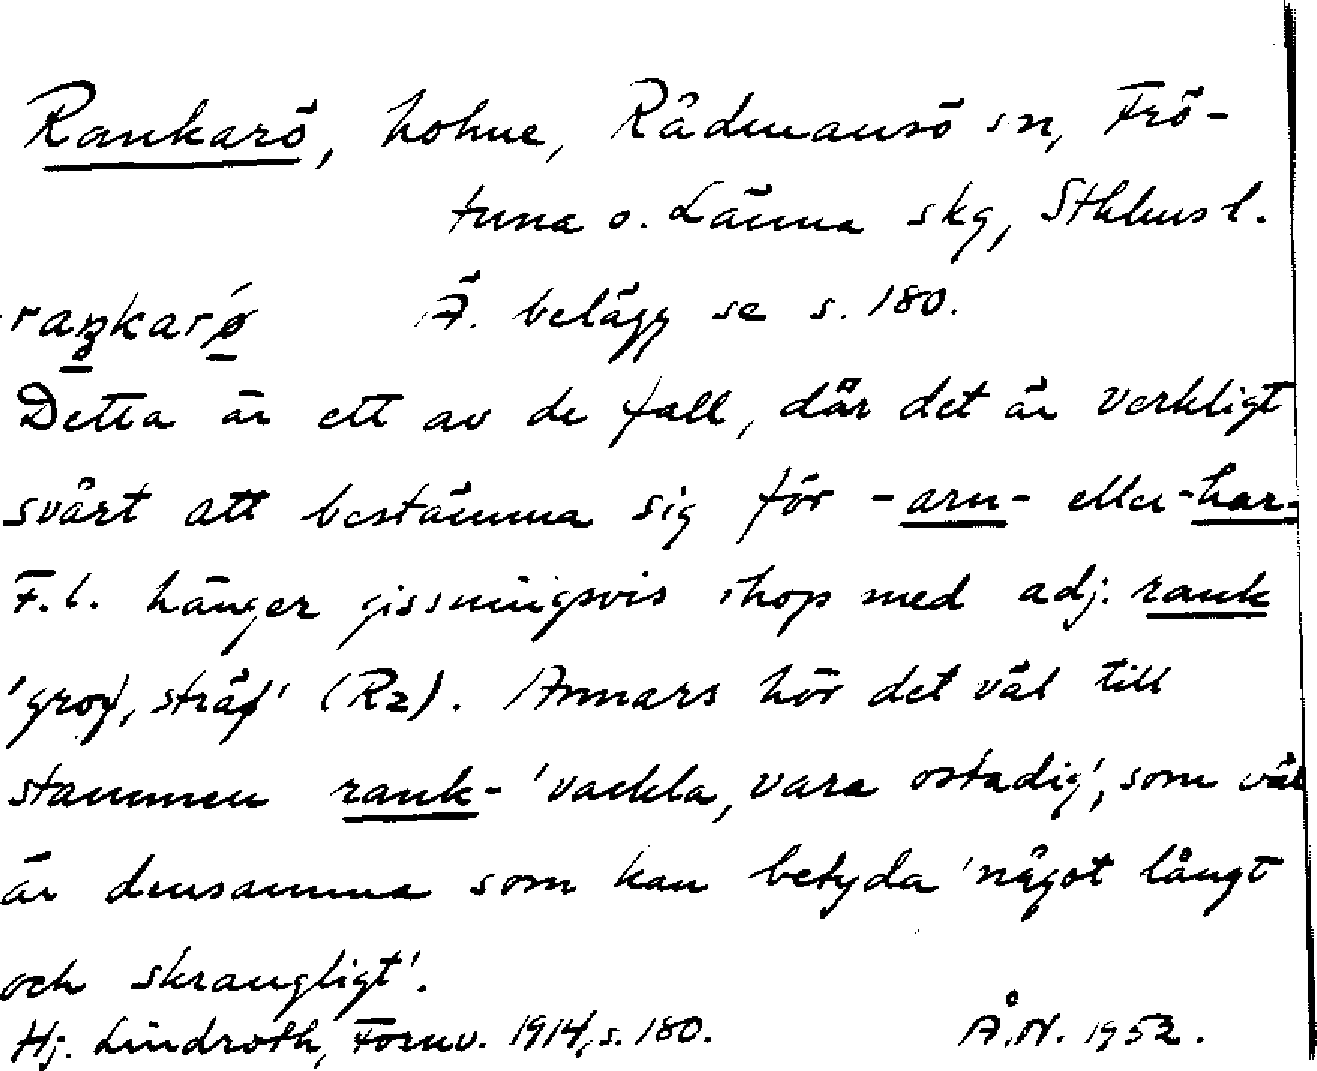 Rankarö, holme, Rådmansö sn, Frö-
tuna o. Länna skg, Sthlms l.
Ä. belägg se s. 180.
Detta är ett av de fall, där det är verkligt
svårt att bestämma sig för -arn- eller -har-
F.l. hänger gissningsvis ihop med adj. rank
'grof, sträf' (Rz). Annars hör det väl till
stammen rank- 'vackla, vara ostadig', som väl
är densamma som kan betyda 'något långt
och skrangligt'.
Hj. Lindroth, Fornv. 1914, s. 180. Å.N. 1952.